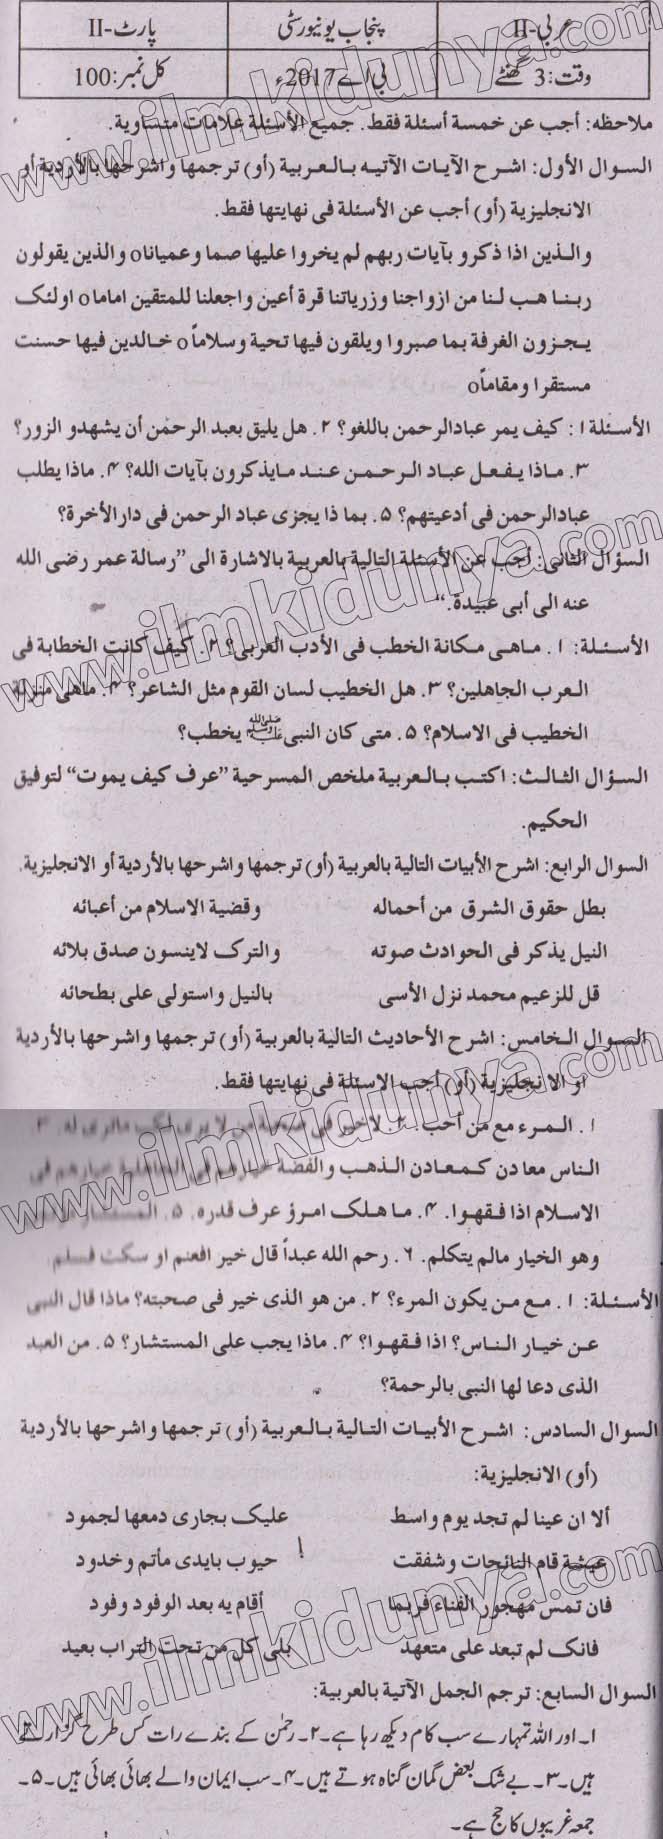 عربی-II پنجاب یونیورسٹی پارٹ-II
وقت: 3 گھنٹے بی اے 2017ء کل نمبر: 100
ملاحظہ: أجب عن خمسة أسئلة فقط. جميع الأسئلة علامات متساوية.
السوال الأول: اشرح الآيات الآتيه بالعربية (أو) ترجمها واشرحها بالأردية أو
الانجليزية (أو) أجب عن الأسئلة فى نهايتها فقط.
والذين اذا ذكرو بآيات ربهم لم يخروا عليها صما وعمياناo والذين يقولون
ربنا هب لنا من ازواجنا وزرياتنا قرة أعين واجعلنا للمتقين اماماo اولئك
يجزون الغرفة بما صبروا ويلقون فيها تحية وسلاماًo خالدين فيها حسنت
مستقرا ومقاماًo
الأسئلة ۱: كيف يمر عبادالرحمن باللغو؟ ۲. هل يليق بعبد الرحمٰن أن يشهدو الزور؟
۳. ماذا يفعل عباد الرحمن عند مايذكرون بآيات الله؟ ۴. ماذا يطلب
عبادالرحمن فى أدعيتهم؟ ۵. بما ذا يجزى عباد الرحمن فى دارالأخرة؟
السؤال الثانى: أجب عن الأسئلة التالية بالعربية بالاشارة الى ”رسالة عمر رضى الله
عنه الى أبى عبيدة.“
الأسئلة: ۱. ماهى مكانة الخطب فى الأدب العربى؟ ۲. كيف كانت الخطابة فى
العرب الجاهلين؟ ۳. هل الخطيب لسان القوم مثل الشاعر؟ ۴. ماهى منزلة
الخطيب فى الاسلام؟ ۵. متى كان النبى ﷺ يخطب؟
السؤال الثالث: اكتب بالعربية ملخص المسرحية ”عرف كيف يموت“ لتوفيق
الحكيم.
السوال الرابع: اشرح الأبيات التالية بالعربية (أو) ترجمها واشرحها بالأردية أو الانجليزية.
بطل حقوق الشرق من أحماله وقضية الاسلام من أعبائه
النيل يذكر فى الحوادث صوته والترك لاينسون صدق بلائه
قل للزعيم محمد نزل الأسى بالنيل واستولى على بطحائه
السوال الخامس: اشرح الأحاديث التالية بالعربية (أو) ترجمها واشرحها بالأردية
او الانجليزية (أو) أجب الاسئلة فى نهايتها فقط.
۱. المرء مع من أحب. ۲. لاخير فى صحبة من لا يرى لك ماترى له. ۳.
الناس معادن كمعادن الذهب والفضة خيارهم فى الجاهلية خيارهم فى
الاسلام اذا فقهوا. ۴. ما هلك امرؤ عرف قدره. ۵. المستشار
وهو الخيار مالم يتكلم. ۶. رحم الله عبداً قال خير افعنم او سكت فسلم.
الأسئلة: ۱. مع من يكون المرء؟ ۲. من هو الذى خير فى صحبته؟ ماذا قال النبى
عن خيار الناس؟ اذا فقهوا؟ ۴. ماذا يجب على المستشار؟ ۵. من العبد
الذى دعا لها النبى بالرحمة؟
السوال السادس: اشرح الأبيات التالية بالعربية (أو) ترجمها واشرحها بالأردية
(أو) الانجليزية:
ألا ان عينا لم تجد يوم واسط عليك بجارى دمعها لجمود
عيشة قام النائحات وشفقت حيوب بايدى مأتم وخدود
فان تمس مهجور الفناء فربما أقام يه بعد الوفود وفود
فانك لم تبعد على متعهد بلى كل من تحت التراب بعيد
السوال السابع: ترجم الجمل الآتية بالعربية:
۱۔ اور اللہ تمہارے سب کام دیکھ رہا ہے۔ ۲۔ رحمٰن کے بندے رات کس طرح گزارتے
ہیں۔ ۳۔ بے شک بعض گمان گناہ ہوتے ہیں۔ ۴۔ سب ایمان والے بھائی بھائی ہیں۔ ۵۔
جمعہ غریبوں کا حج ہے۔
www.ilmkidunya.com
www.ilmkidunya.com
www.ilmkidunya.com
www.ilmkidunya.com
www.ilmkidunya.com